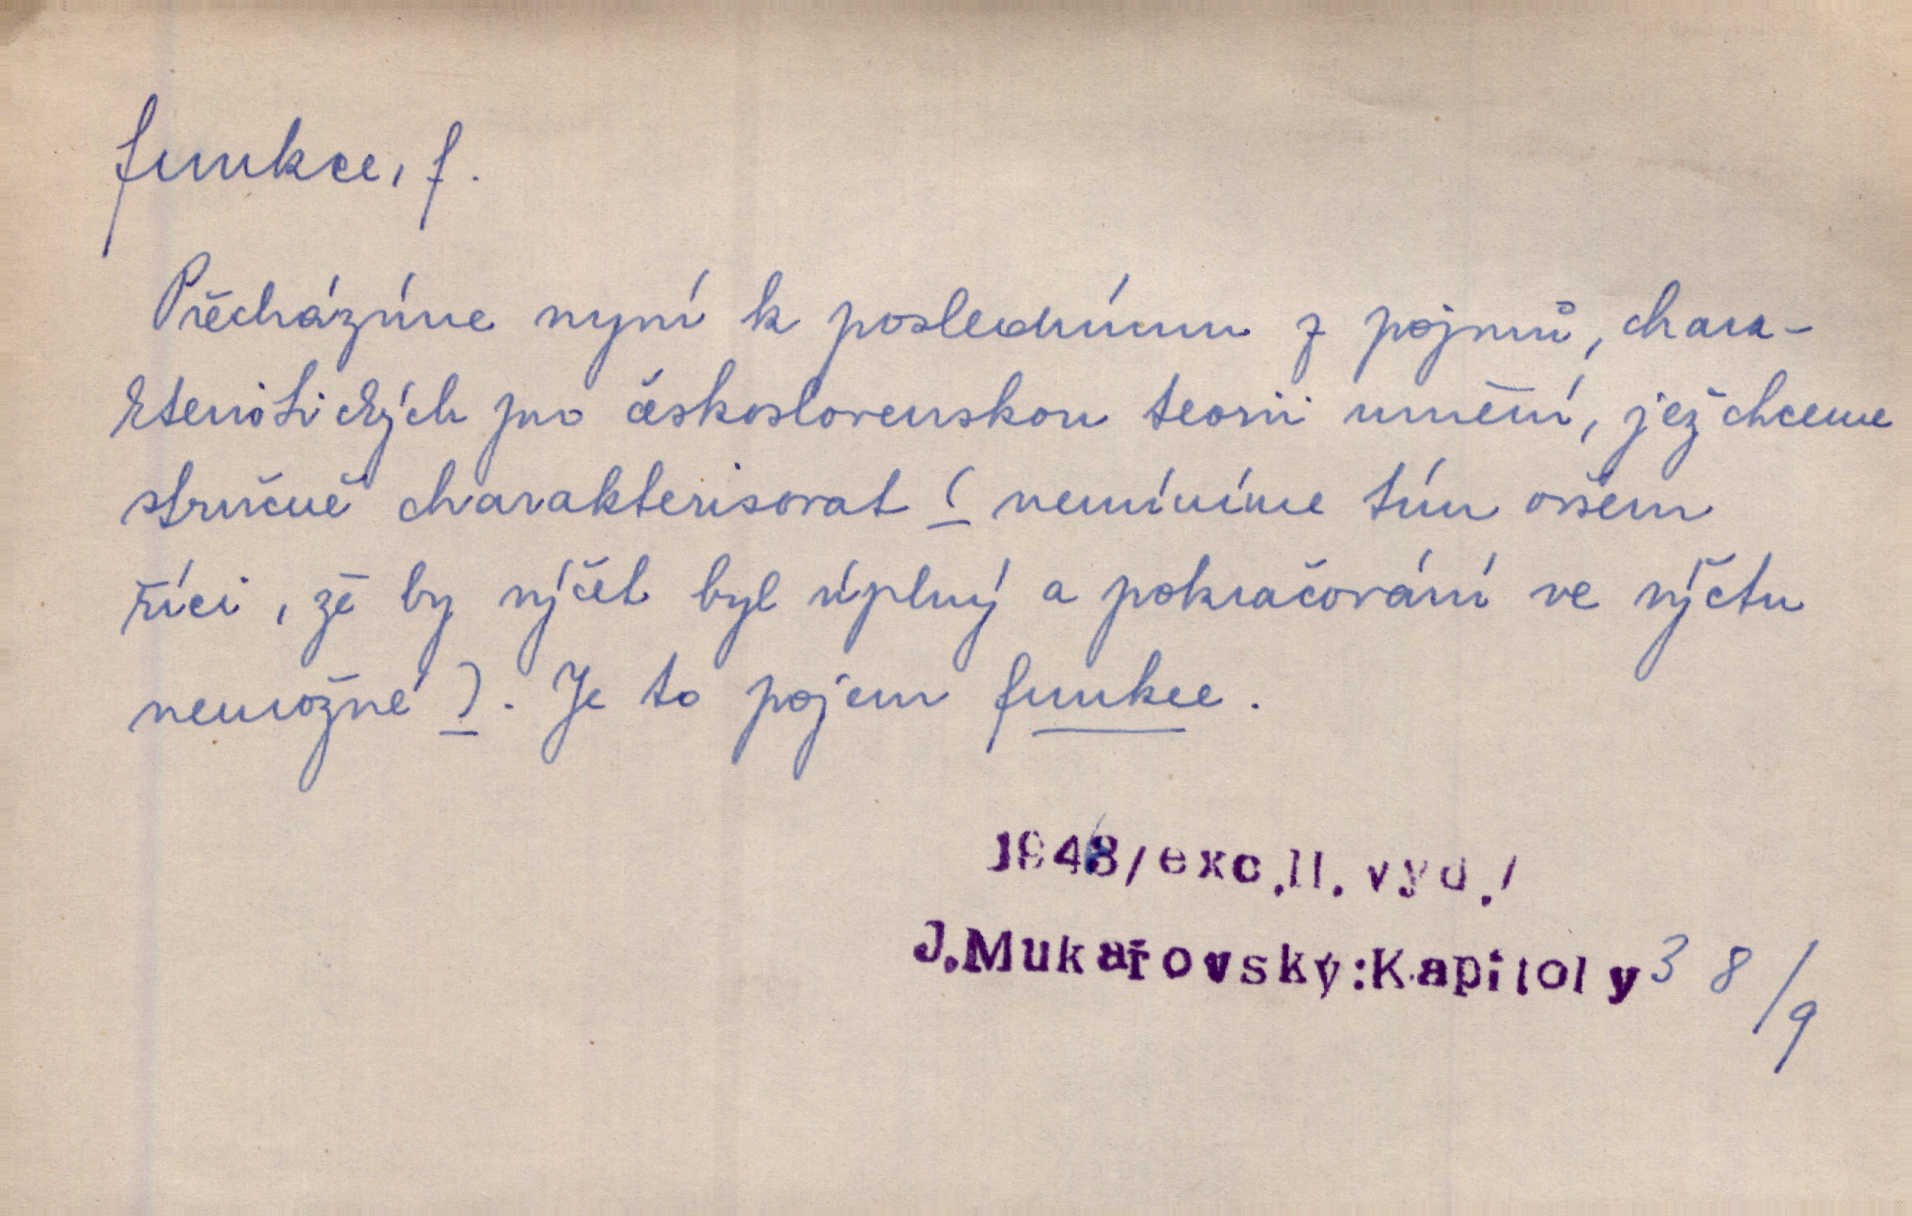 funkce, f.
Přecházíme nyní k poslednímu z pojmů, chara-
kteristických pro československou teorii umění, jež chceme
stručně charakterisovat ( nemíníme tím ovšem
říci, že by výčet byl úplný a pokračování ve výčtu
nemožné ). Je to pojem funkce.
1948/exc.II.vyd./
J.Mukařovský:Kapitoly 38/9